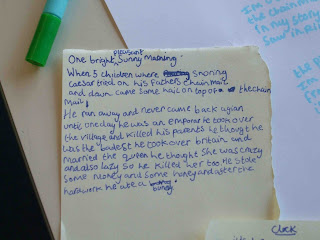 pleasant
One bright sunny morning
When 5 children where snoring
caesar tried on his Fathers chainmail
and down came some hail on top of the chain
mail!
He ran away and never came back agian
until one day he was an emporor to take over
the village and killed his parents he thoght he
was the badest he took over britain and
married the queen he thought she was crazy
and also lazy so he killed her too. He stole
some money and some honey and after the
hardwork he ate a
bunny.
I'm
the chainm
In my story
Clock